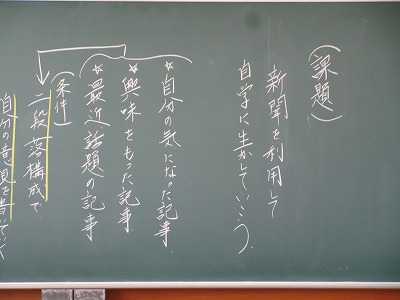 (課題)
新聞を利用して
自学に生かしていこう。
☆自分の気になった記事
☆興味をもった記事
☆最近話題の記事
(条件)
二段落構成で
自分の意見を書いていく